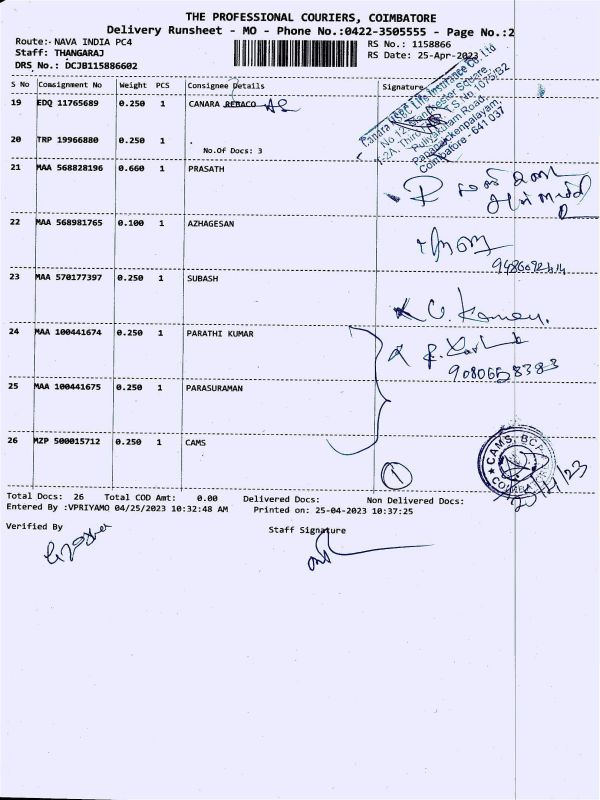 THE PROFESSIONAL COURIERS, COIMBATORE
Delivery Runsheet - MO - Phone No.:0422-3505555 - Page No.:2
Route:- NAVA INDIA PC4
RS No.: 1158866
Staff: THANGARAJ
RS Date: 25-Apr-2023
DRS No.: DCJB115886602
S No Consignment No Weight PCS Consignee Details Signature
19 EDQ 11765689 0.250 1 CANARA REBACO
20 TRP 19966880 0.250 1 .
No.Of Docs: 3
Canara HSBC Life Insurance Co Ltd
Puliyakulam Road,
Pappanaickenpalayam,
Coimbatore - 641 037
21 MAA 568828196 0.660 1 PRASATH
22 MAA 568981765 0.100 1 AZHAGESAN
23 MAA 570177397 0.250 1 SUBASH
24 MAA 100441674 0.250 1 PARATHI KUMAR
9080658383
25 MAA 100441675 0.250 1 PARASURAMAN
26 MZP 500015712 0.250 1 CAMS
1
Total Docs: 26 Total COD Amt: 0.00 Delivered Docs: Non Delivered Docs:
Entered By :VPRIYAMO 04/25/2023 10:32:48 AM Printed on: 25-04-2023 10:37:25
Verified By Staff Signature